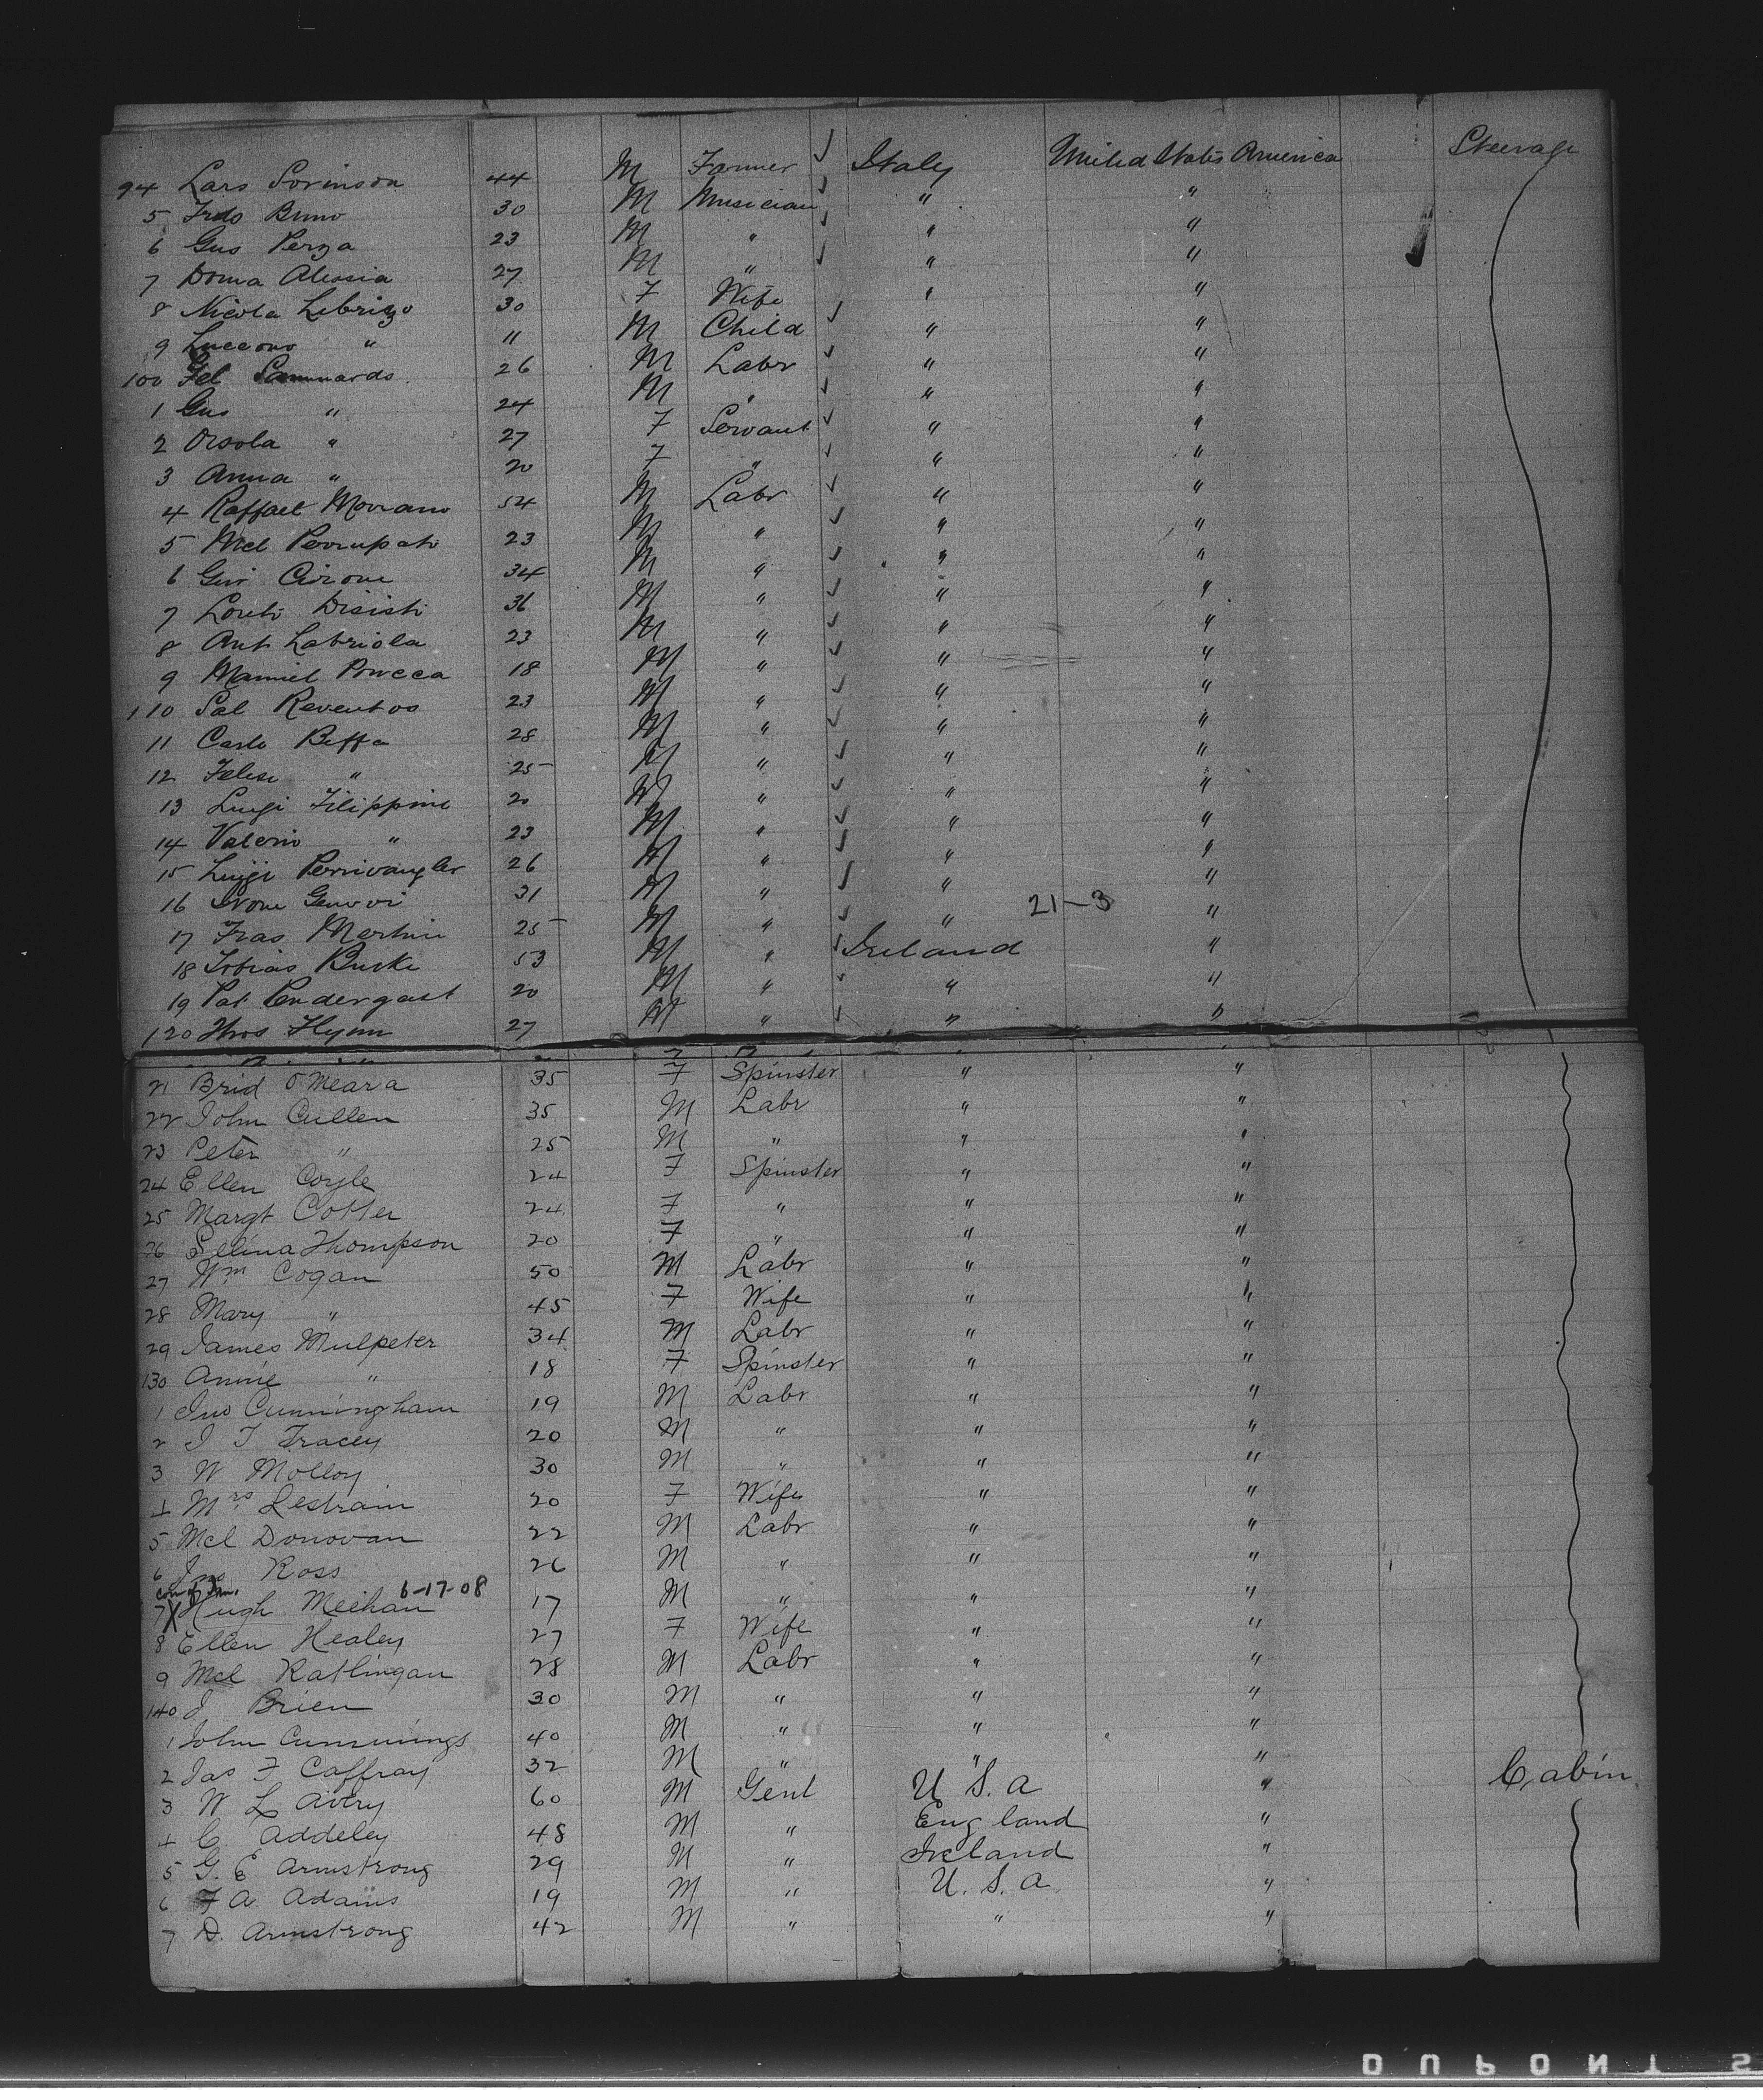 94 Lars Sorinson 44 M Farmer ✓ Italy United States America Steerage
5 Frds Bruno 30 M Musician ✓ " "
6 Gus Perza 23 M " ✓ " "
7 Doma Alessia 27 M " ✓ " "
8 Nicola Lebrizo 30 F Wife " "
9 " 11 M Child ✓ " "
100 Fel Sammardo 26 M Labr ✓ " "
1 Gus " 24 M " ✓ " "
2 Orsola " 27 F Servant ✓ " "
3 Anna " 20 F " ✓ " "
4 Raffael Morrano 54 M Labr ✓ " "
5 Mcl 23 M " ✓ " "
6 Gui Cirone 34 M " ✓ " "
7 Loreto Disisti 36 M " ✓ " "
8 Ant Labriola 23 M " ✓ " "
9 18 M " ✓ " "
110 Sal Reventos 23 M " ✓ " "
11 Carlo Beffa 28 M " ✓ " "
12 Felise " 25 M " ✓ " "
13 Luigi Filippini 20 M " ✓ " "
14 Valerio " 23 M " ✓ " "
15 Luigi 26 M " ✓ " "
16 31 M " ✓ " "
21-3
17 Fras Martini 25 M " ✓ " "
18 Tobias Burke 53 M " ✓ Ireland "
19 Pat Pendergast 20 M " ✓ " "
120 Thos Flynn 27 M " ✓ " "
21 Brid O'Meara 35 F Spinster " "
22 John Cullen 35 M Labr " "
23 Peter " 25 M " " "
24 Ellen Coyle 24 F Spinster " "
25 Margt Cotter 24 F " " "
26 Selina Thompson 20 F " " "
27 Wm Cogan 50 M Labr " "
28 Mary " 45 F Wife " "
29 James Mulpeter 34 M Labr " "
130 Annie " 18 F Spinster " "
1 Jno Cunningham 19 M Labr " "
2 J T Tracey 20 M " " "
3 W Molloy 30 M " " "
4 Mrs Lestrain 20 F Wife " "
5 Mcl Donovan 22 M Labr " "
6 Jno Ross 26 M " " "
6-17-08
7 X Hugh Meehan 17 M " " "
8 Ellen Healey 27 F Wife " "
9 Mcl Ratlingan 28 M Labr " "
140 J Brien 30 M " " "
1 John Cummings 40 M " " "
2 Jas F Caffray 32 M " " "
3 W L Avery 60 M Gent U.S.A " Cabin
4 C. Addeley 48 M " England "
5 G. E Armstrong 29 M " Ireland "
6 F A Adams 19 M " U.S.A "
7 D. Armstrong 42 M " " "
DUPONT S